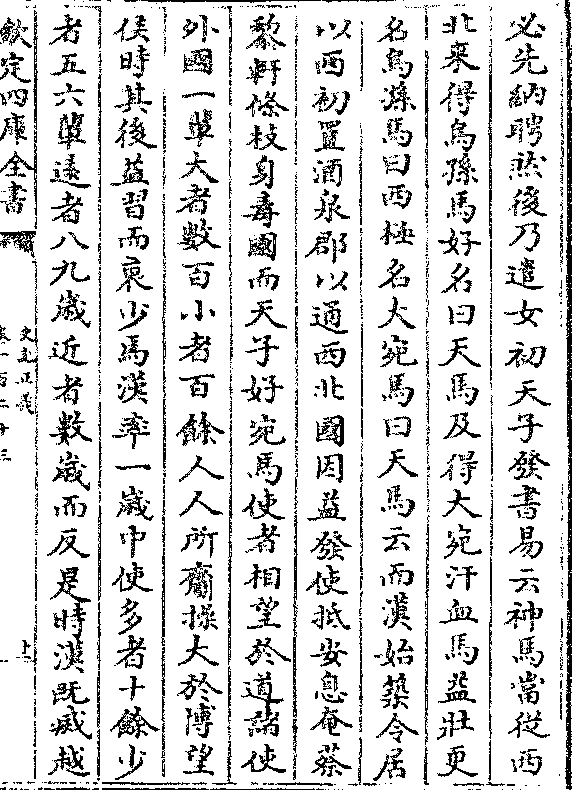 必先納聘然後乃遣女初天子發書易云神馬當從西
北來得烏孫馬好名曰天馬及得大宛汗血馬益壯更
名烏孫馬曰西極名大宛馬曰天馬云而漢始築令居
以西初置酒泉郡以通西北國因益發使抵安息奄蔡
黎軒條枝身毒國而天子好宛馬使者相望於道諸使
外國一輩大者數百小者百餘人人所齎操大放博望
侯時其後益習而衰少焉漢率一歲中使多者十餘少
者五六輩遠者八九歲近者數歲而反是時漢既滅越
欽定四庫全書
史記正義
卷一百二十三